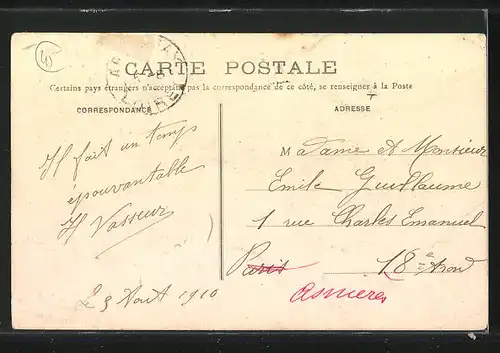 CARTE POSTALE
Certains pays étrangers n'acceptant pas la correspondance de ce côté, se renseigner à la Poste
CORRESPONDANCE
ADRESSE
Il fait un temps
épouvantable
H Vasseur
Le 3 Aout 1910
Madame et Monsieur
Emile Guillaume
1 rue Charles Emanuel
Paris 18e Arrond
Asnieres